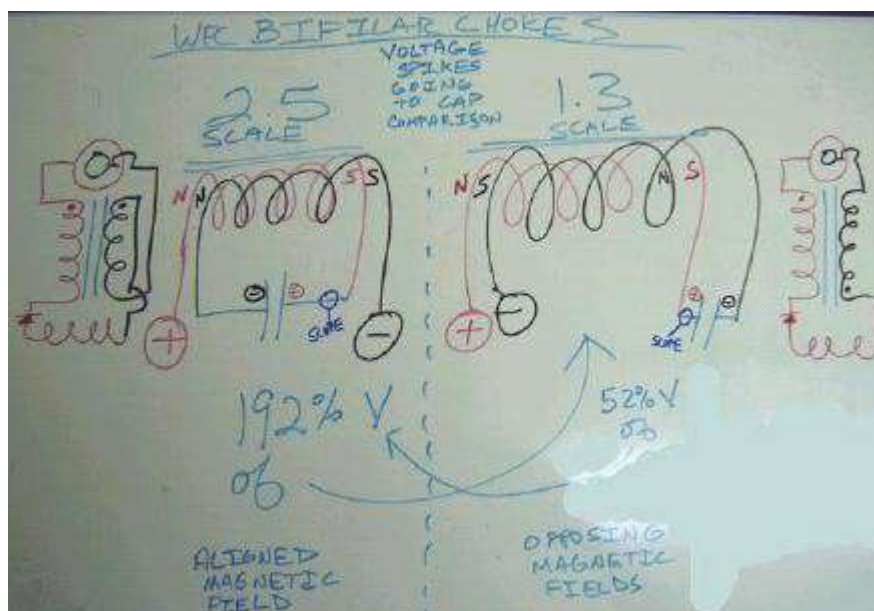 WFC BIFILAR CHOKES
VOLTAGE
SPIKES
GOING
TO CAP
COMPARISON
2.5
SCALE
1.3
SCALE
N N S S
N S N S
⊖ ⊕
SCOPE
+ −
+ −
⊕ ⊖
SCOPE
192% V
of
52% V
of
ALIGNED
MAGNETIC
FIELD
OPPOSING
MAGNETIC
FIELDS